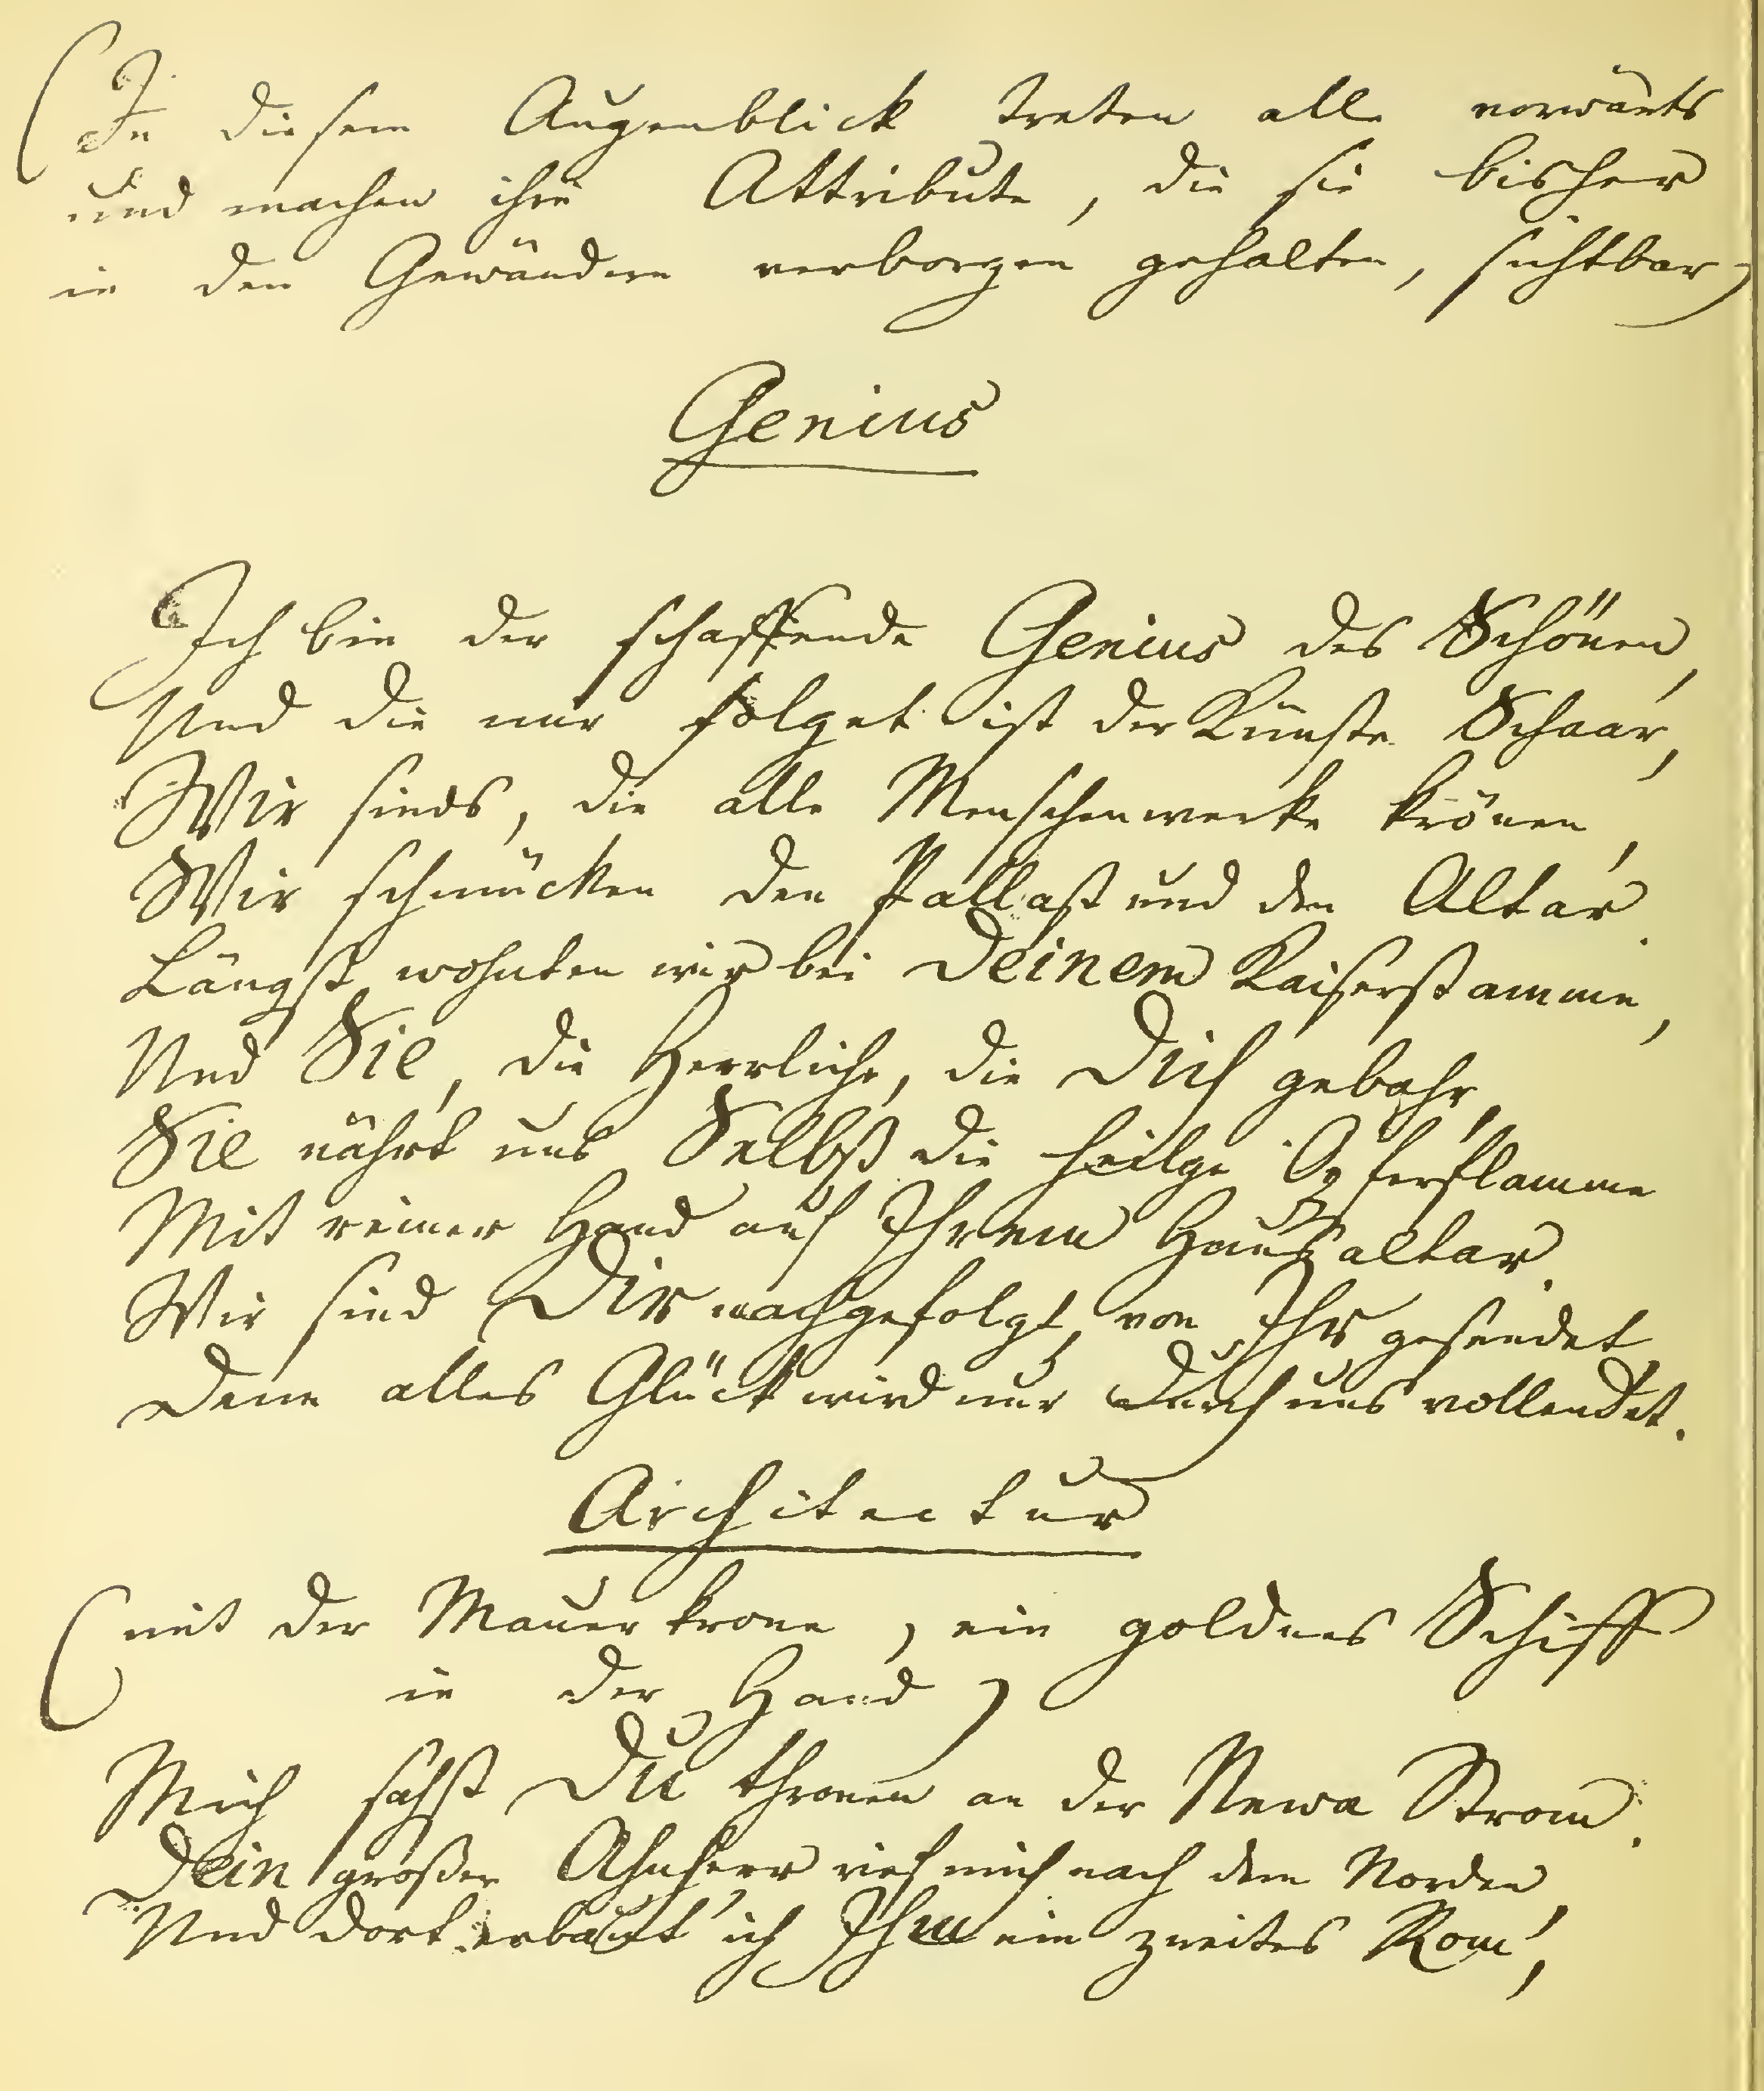 (In diesem Augenblick treten alle vorwärts
und machen ihre Attribute, die sie bisher
in den Gewändern verborgen gehalten, sichtbar)
Genius
Ich bin der schaffende Genius des Schönen,
Und die mir folget ist der Künste Schaar,
Wir sinds, die alle Menschenwerke krönen,
Wir schmücken den Pallast und den Altar.
Längst wohnten wir bei Deinem Kaiserstamme,
Und Sie, die Herrliche, die Dich gebahr,
Sie nährt uns Selbst die heilge Opferflamme
Mit reiner Hand auf Ihrem Hausaltar.
Wir sind Dir nachgefolgt, von Ihr gesendet
Denn alles Glück wird nur durch uns vollendet.
Architectur
(mit der Mauerkrone, ein goldnes Schiff
in der Hand)
Mich sahst Du thronen an der Newa Strom.
Dein großer Ahnherr rief mich nach dem Norden,
Und dort erbaut' ich Ihm ein zweites Rom,